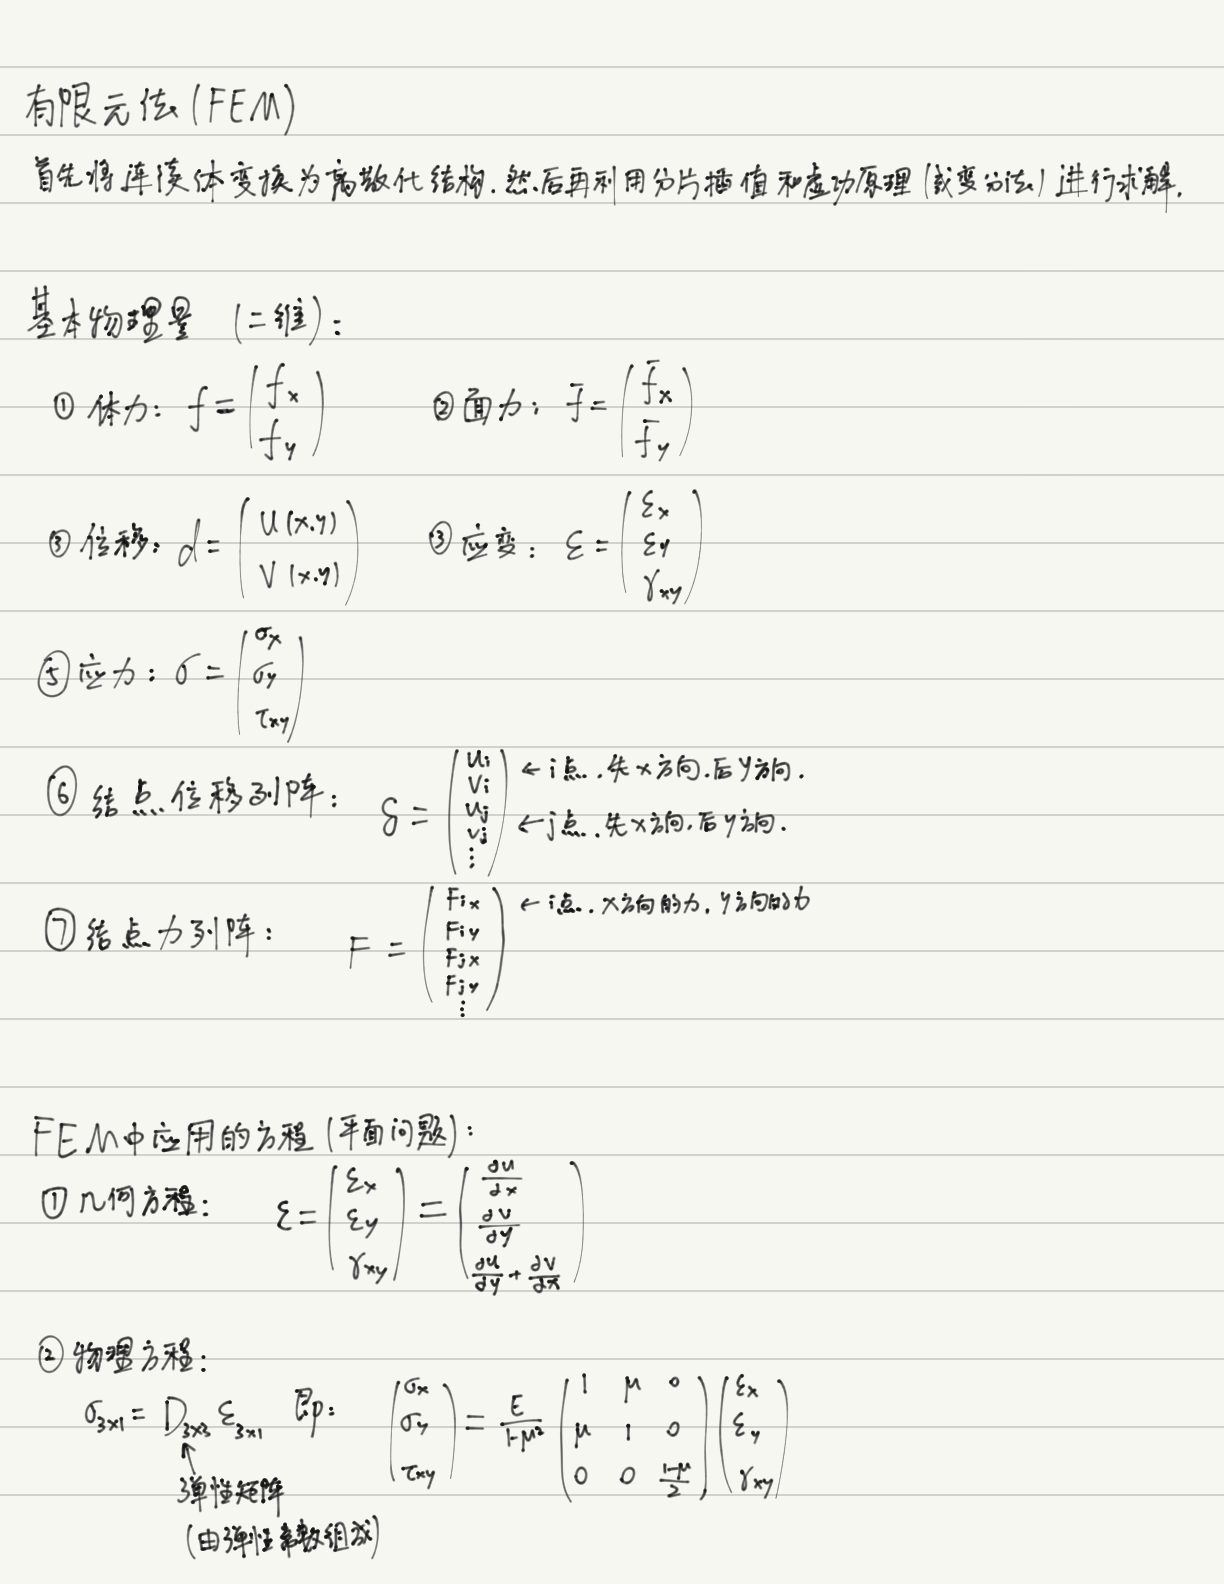 有限元法(FEM)
首先将连续体变换为离散化结构.然后再利用分片插值和虚功原理(或变分法)进行求解.
基本物理量 (二维):
① 体力: f = (f_x f_y) ② 面力: f̄ = (f̄_x f̄_y)
③ 位移: d = (u(x.y) v(x.y)) ③ 应变: ε = (ε_x ε_y γ_xy)
⑤ 应力: σ = (σ_x σ_y τ_xy)
⑥ 结点位移列阵: δ = (u_i v_i u_j v_j ⋮) ← i点.先x方向.后y方向.
← j点.先x方向.后y方向.
⑦ 结点力列阵: F = (F_ix F_iy F_jx F_jy ⋮) ← i点.x方向的力.y方向的力
FEM中应用的方程(平面问题):
① 几何方程: ε = (ε_x ε_y γ_xy) = (∂u/∂x ∂v/∂y ∂u/∂y + ∂v/∂x)
② 物理方程:
σ_3×1 = D_3×3 ε_3×1 即: (σ_x σ_y τ_xy) = E/(1-μ²) (1 μ 0 μ 1 0 0 0 (1-μ)/2) (ε_x ε_y γ_xy)
弹性矩阵
(由弹性系数组成)